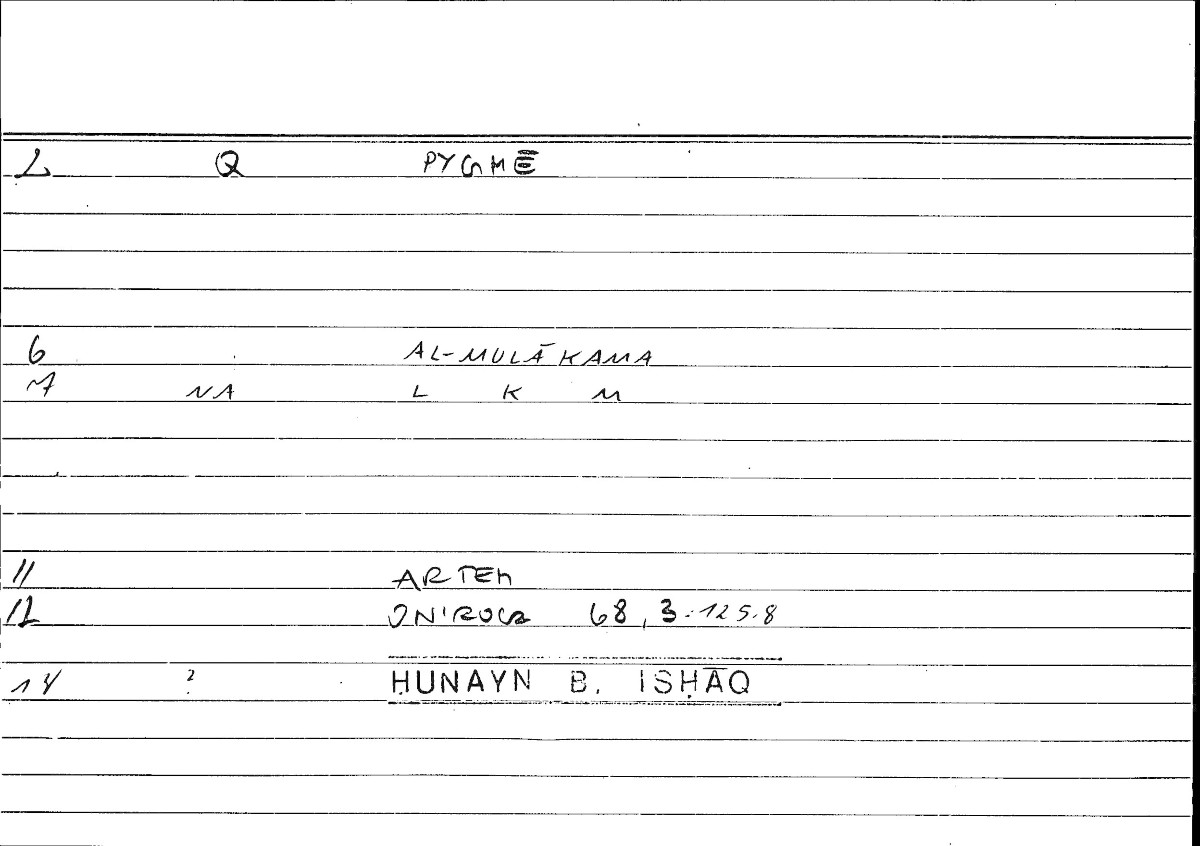 2 Q PYGMĒ
6 AL-MULĀKAMA
7 NA L K M
11 ARTEM
12 ONIROCR 68,3-125.8
14 ? ḤUNAYN B. ISḤĀQ